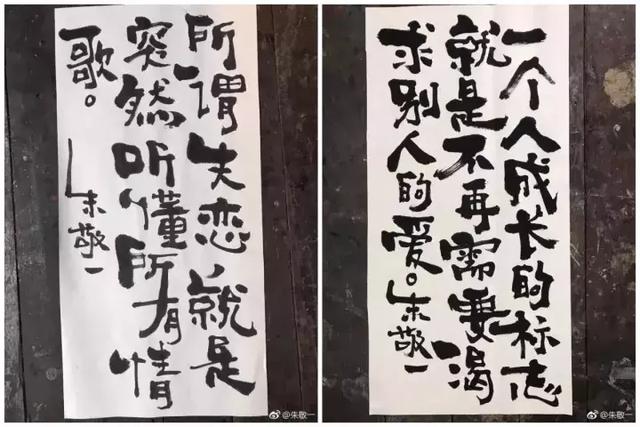 所谓失恋，就是
突然听懂所有情
歌。
朱敬一
@朱敬一
一个人成长的标志
就是不再需要渴
求别人的爱。朱敬一
@朱敬一